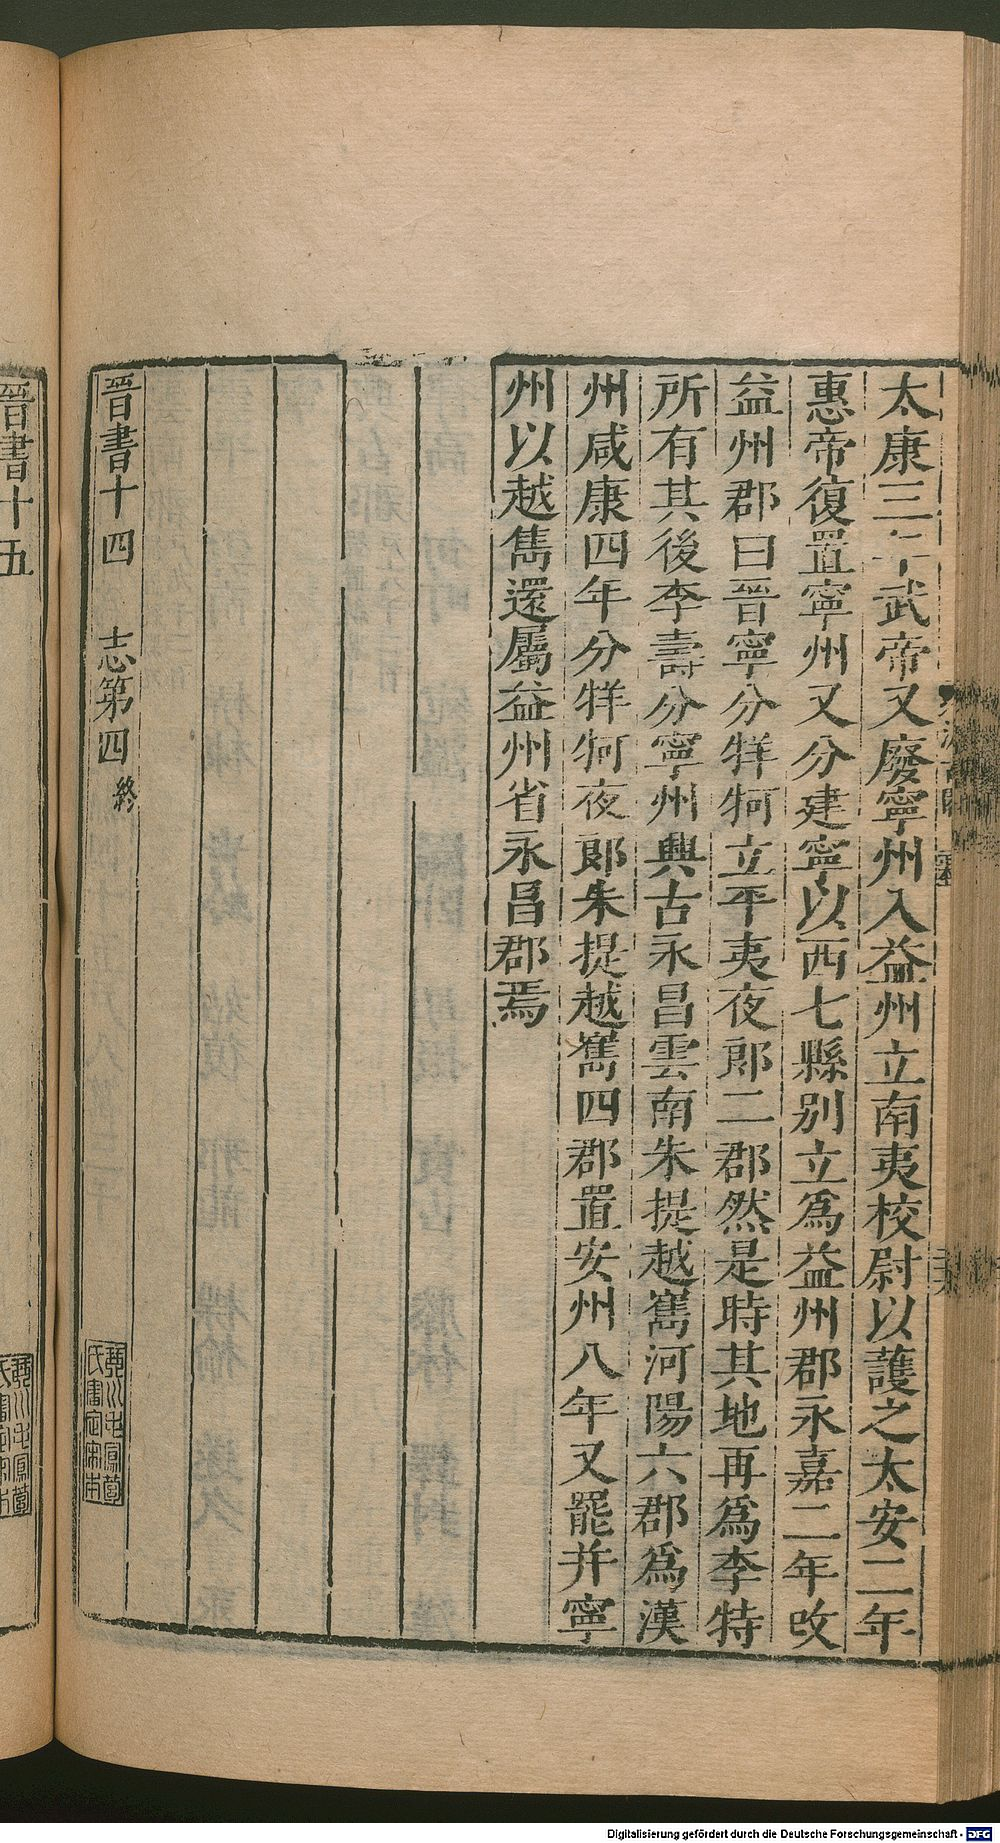 太康三年武帝又廢寧州入益州立南夷校尉以護之太安二年
惠帝復置寧州又分建寧以西七縣別立爲益州郡永嘉二年改
益州郡曰晉寧分牂牁立平夷夜郎二郡然是時其地再爲李特
所有其後李壽分寧州興古永昌雲南朱提越嶲河陽六郡爲漢
州咸康四年分牂牁夜郎朱提越嶲四郡置安州八年又罷并寧
州以越雋還屬益州省永昌郡焉
晉書十四 志第四 終
琴川毛鳳苞
氏審定宋本
晉書十五
琴川毛鳳苞
氏審定宋本
Digitalisierung gefördert durch die Deutsche Forschungsgemeinschaft - DFG